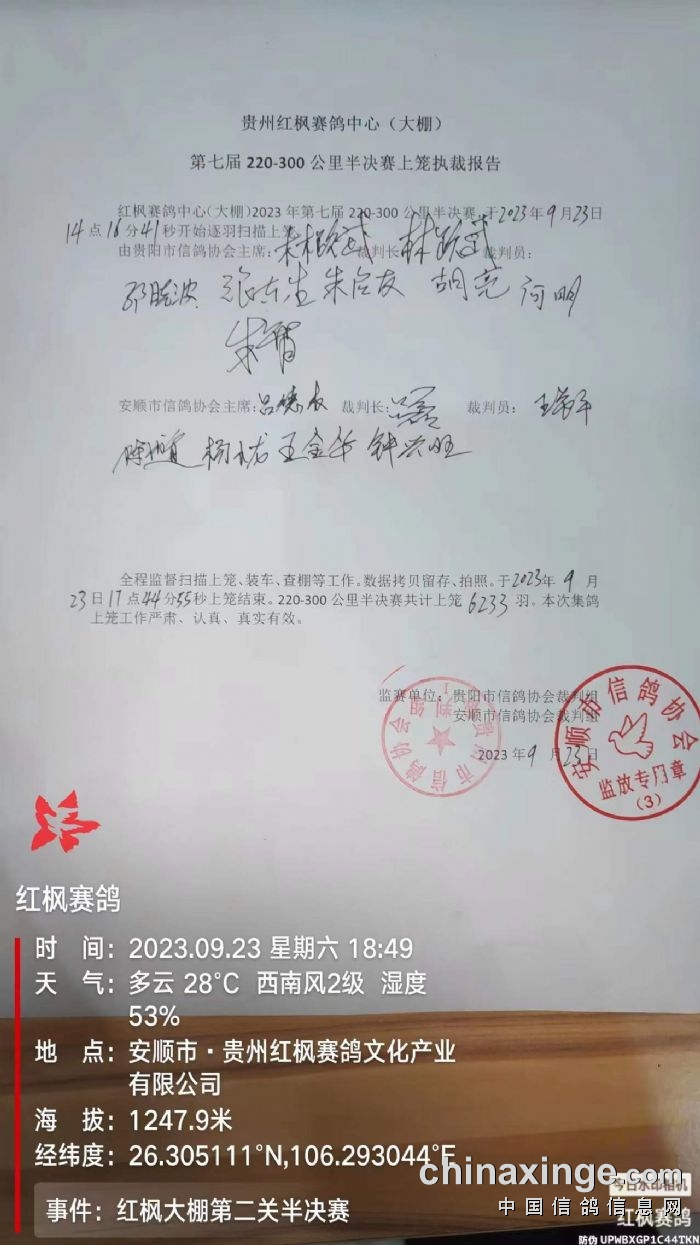 贵州红枫赛鸽中心（大棚）
第七届 220-300 公里半决赛上笼执裁报告
红枫赛鸽中心（大棚）2023 年第七届 220-300 公里半决赛，于2023年9月23日
14点16分41秒开始逐羽扫描上笼。
由贵阳市信鸽协会主席： 裁判长 林政武 裁判员：
张东生 朱启友 胡亮 何明
安顺市信鸽协会主席： 裁判长： 裁判员：
王金华 钟兴旺
全程监督扫描上笼、装车、查棚等工作。数据拷贝留存、拍照。于2023年 9 月
23日17点44分55秒上笼结束。220-300 公里半决赛共计上笼 6233 羽。本次集鸽
上笼工作严肃、认真、真实有效。
监赛单位：贵阳市信鸽协会裁判组
安顺市信鸽协会裁判组
2023 年9月23日
贵阳市信鸽协会裁判组
安顺市信鸽协会
监放专用章
（3）
红枫赛鸽
时 间：2023.09.23 星期六 18:49
天 气：多云 28°C 西南风2级 湿度
53%
地 点：安顺市·贵州红枫赛鸽文化产业
有限公司
海 拔：1247.9米
经纬度：26.305111°N,106.293044°E
事件：红枫大棚第二关半决赛
chinaxinge.com
中国信鸽信息网
今日水印相机
红枫赛鸽
防伪 UPWBXGP1C44TKN